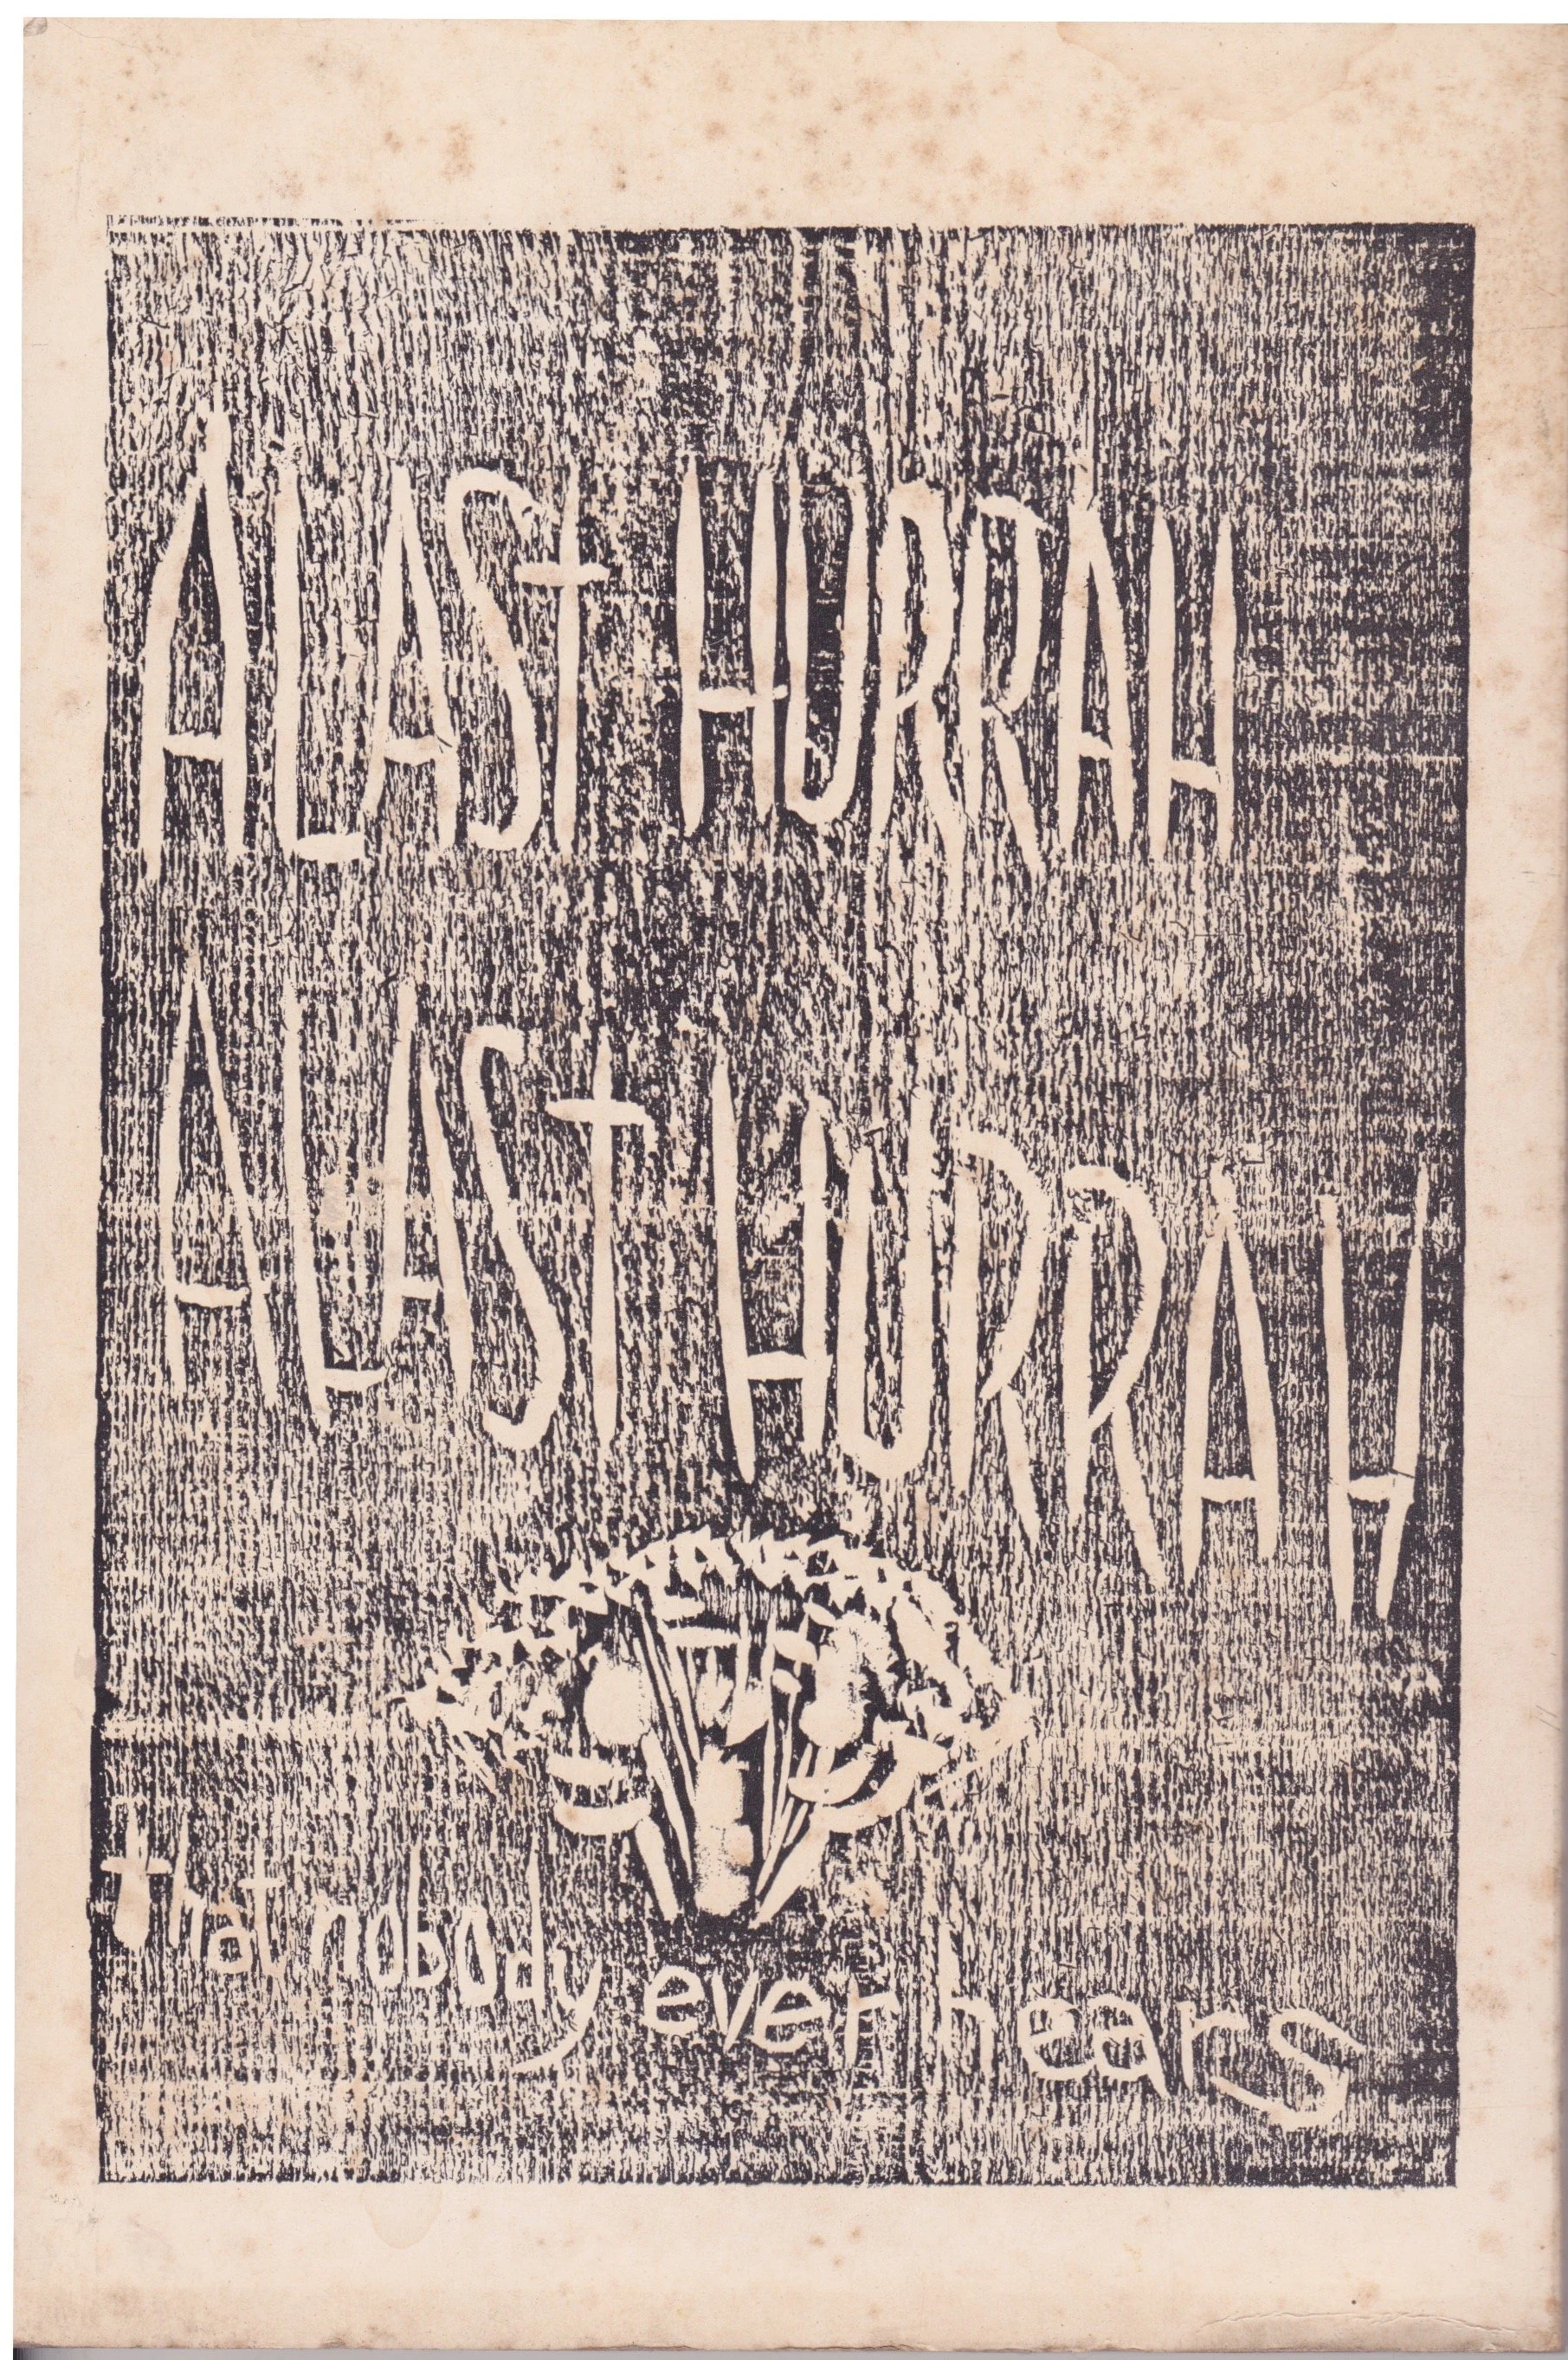 A LAST HURRAH
A LAST HURRAH
that nobody ever hears